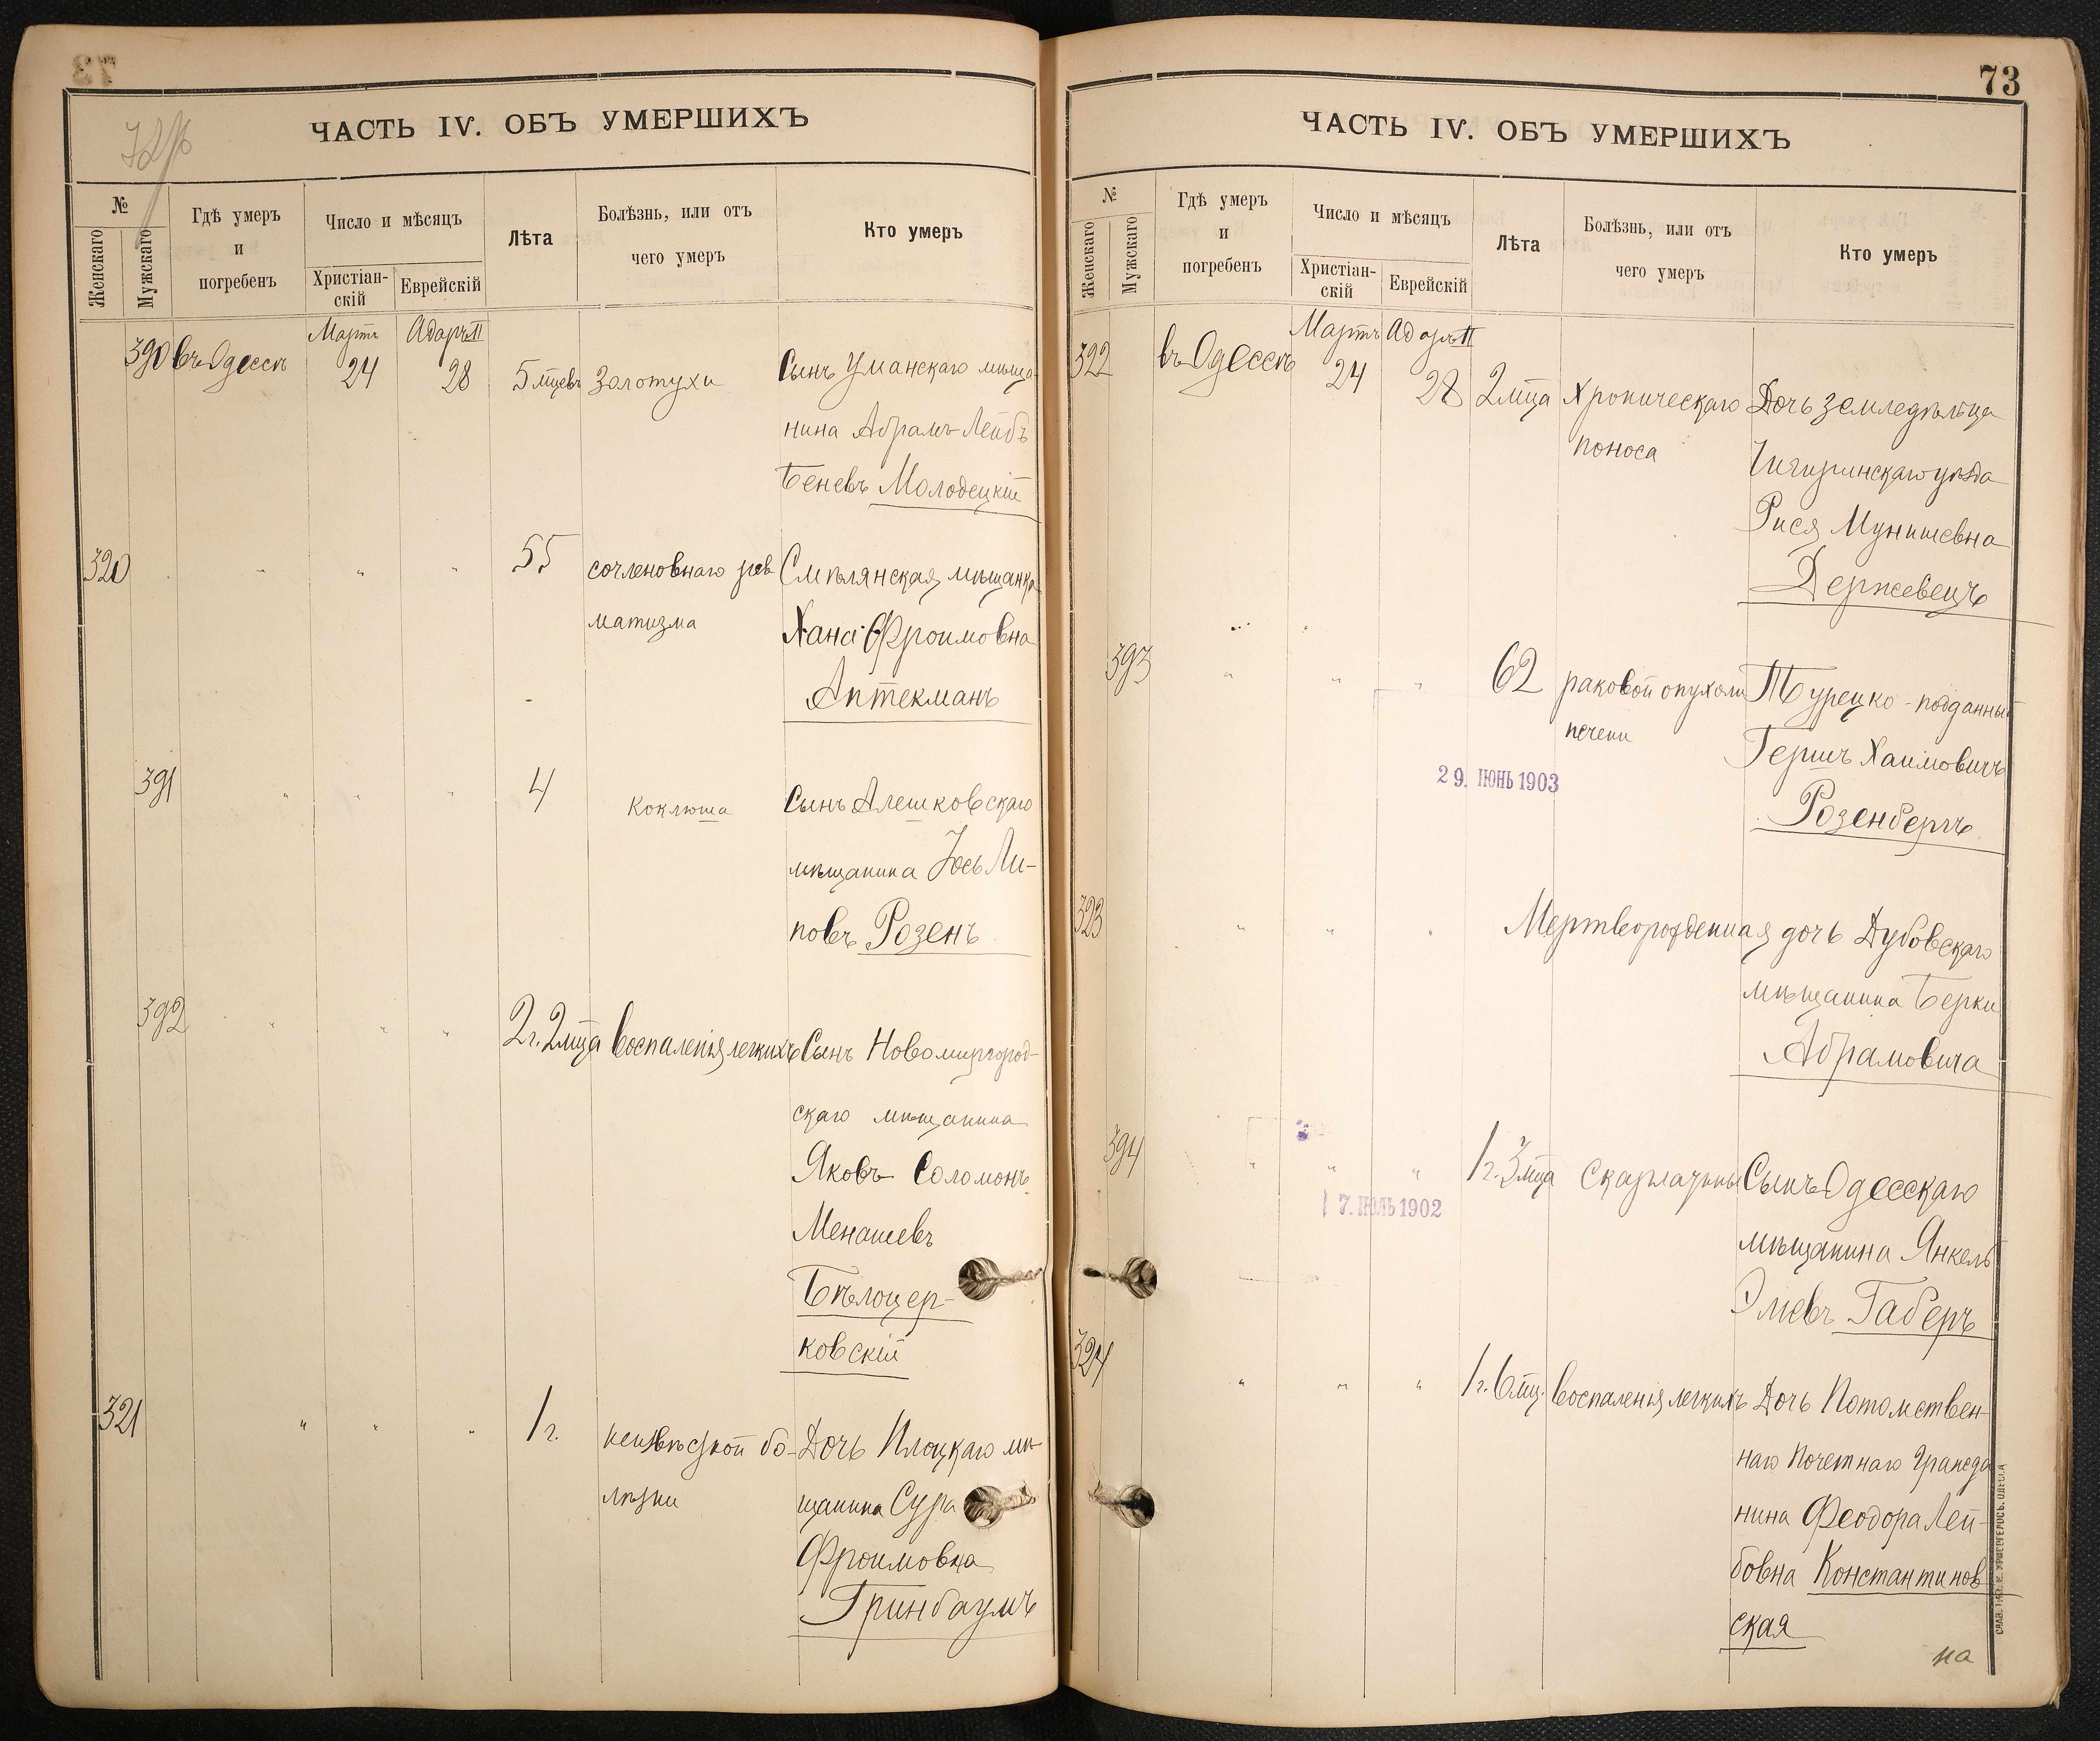 73
ЧАСТЬ IV. ОБЪ УМЕРШИХЪ
№
Женскаго
Мужскаго
Гдѣ умеръ
и
погребенъ
Число и мѣсяцъ
Христіан-
скій
Еврейскій
Лѣта
Болѣзнь, или отъ
чего умеръ
Кто умеръ
Мартъ Адаръ II
390 въ Одессѣ 24 28 5 мцевъ Золотухи Сынъ Уманскаго мѣща-
нина Абрамъ-Лейбъ
Беневъ Молодецкій
320 " " " 55 сочленовнаго рев Смѣлянская мѣщанка
матизма Хана Фроимовна
Аптекманъ
391 " " " 4 Коклюша Сынъ Алешковскаго
мѣщанина Іось Ли-
повъ Розенъ
392 " " " 2 г. 2 мца воспаленія легкихъ Сынъ Новомиргород-
скаго мѣщанина
Яковъ Соломонъ
Менашевъ
Бѣлоцер-
ковскій
321 " " " 1 г. неизвѣстной бо- Дочь Плоцкаго мѣ-
лѣзни щанина Сура
Фроимовна
Гринбаумъ
73
ЧАСТЬ IV. ОБЪ УМЕРШИХЪ
№
Женскаго
Мужскаго
Гдѣ умеръ
и
погребенъ
Число и мѣсяцъ
Христіан-
скій
Еврейскій
Лѣта
Болѣзнь, или отъ
чего умеръ
Кто умеръ
Мартъ Адаръ II
322 въ Одессѣ 24 28 2 мца Хроническаго Дочь земледѣльца
поноса Чигиринскаго уѣзда
Рися Мунишевна
Держевецъ
393 " " " 62 раковой опухоли Турецко-подданный
печени Гершъ Хаимовичъ
29. ІЮНЬ 1903
Розенбергъ
323 " " " Мертворожденная дочь Дубовскаго
мѣщанина Берки
Абрамовича
394 " " " 1 г. 3 мца Скарлатины Сынъ Одесскаго
17. ІЮЛЬ 1902
мѣщанина Янкель
Эліевъ Габеръ
324 " " " 1 г. 6 мц. Воспаленія легкихъ Дочь Потомствен-
наго Почетнаго Гражда
нина Феодора Лей-
бовна Константинов
ская
на